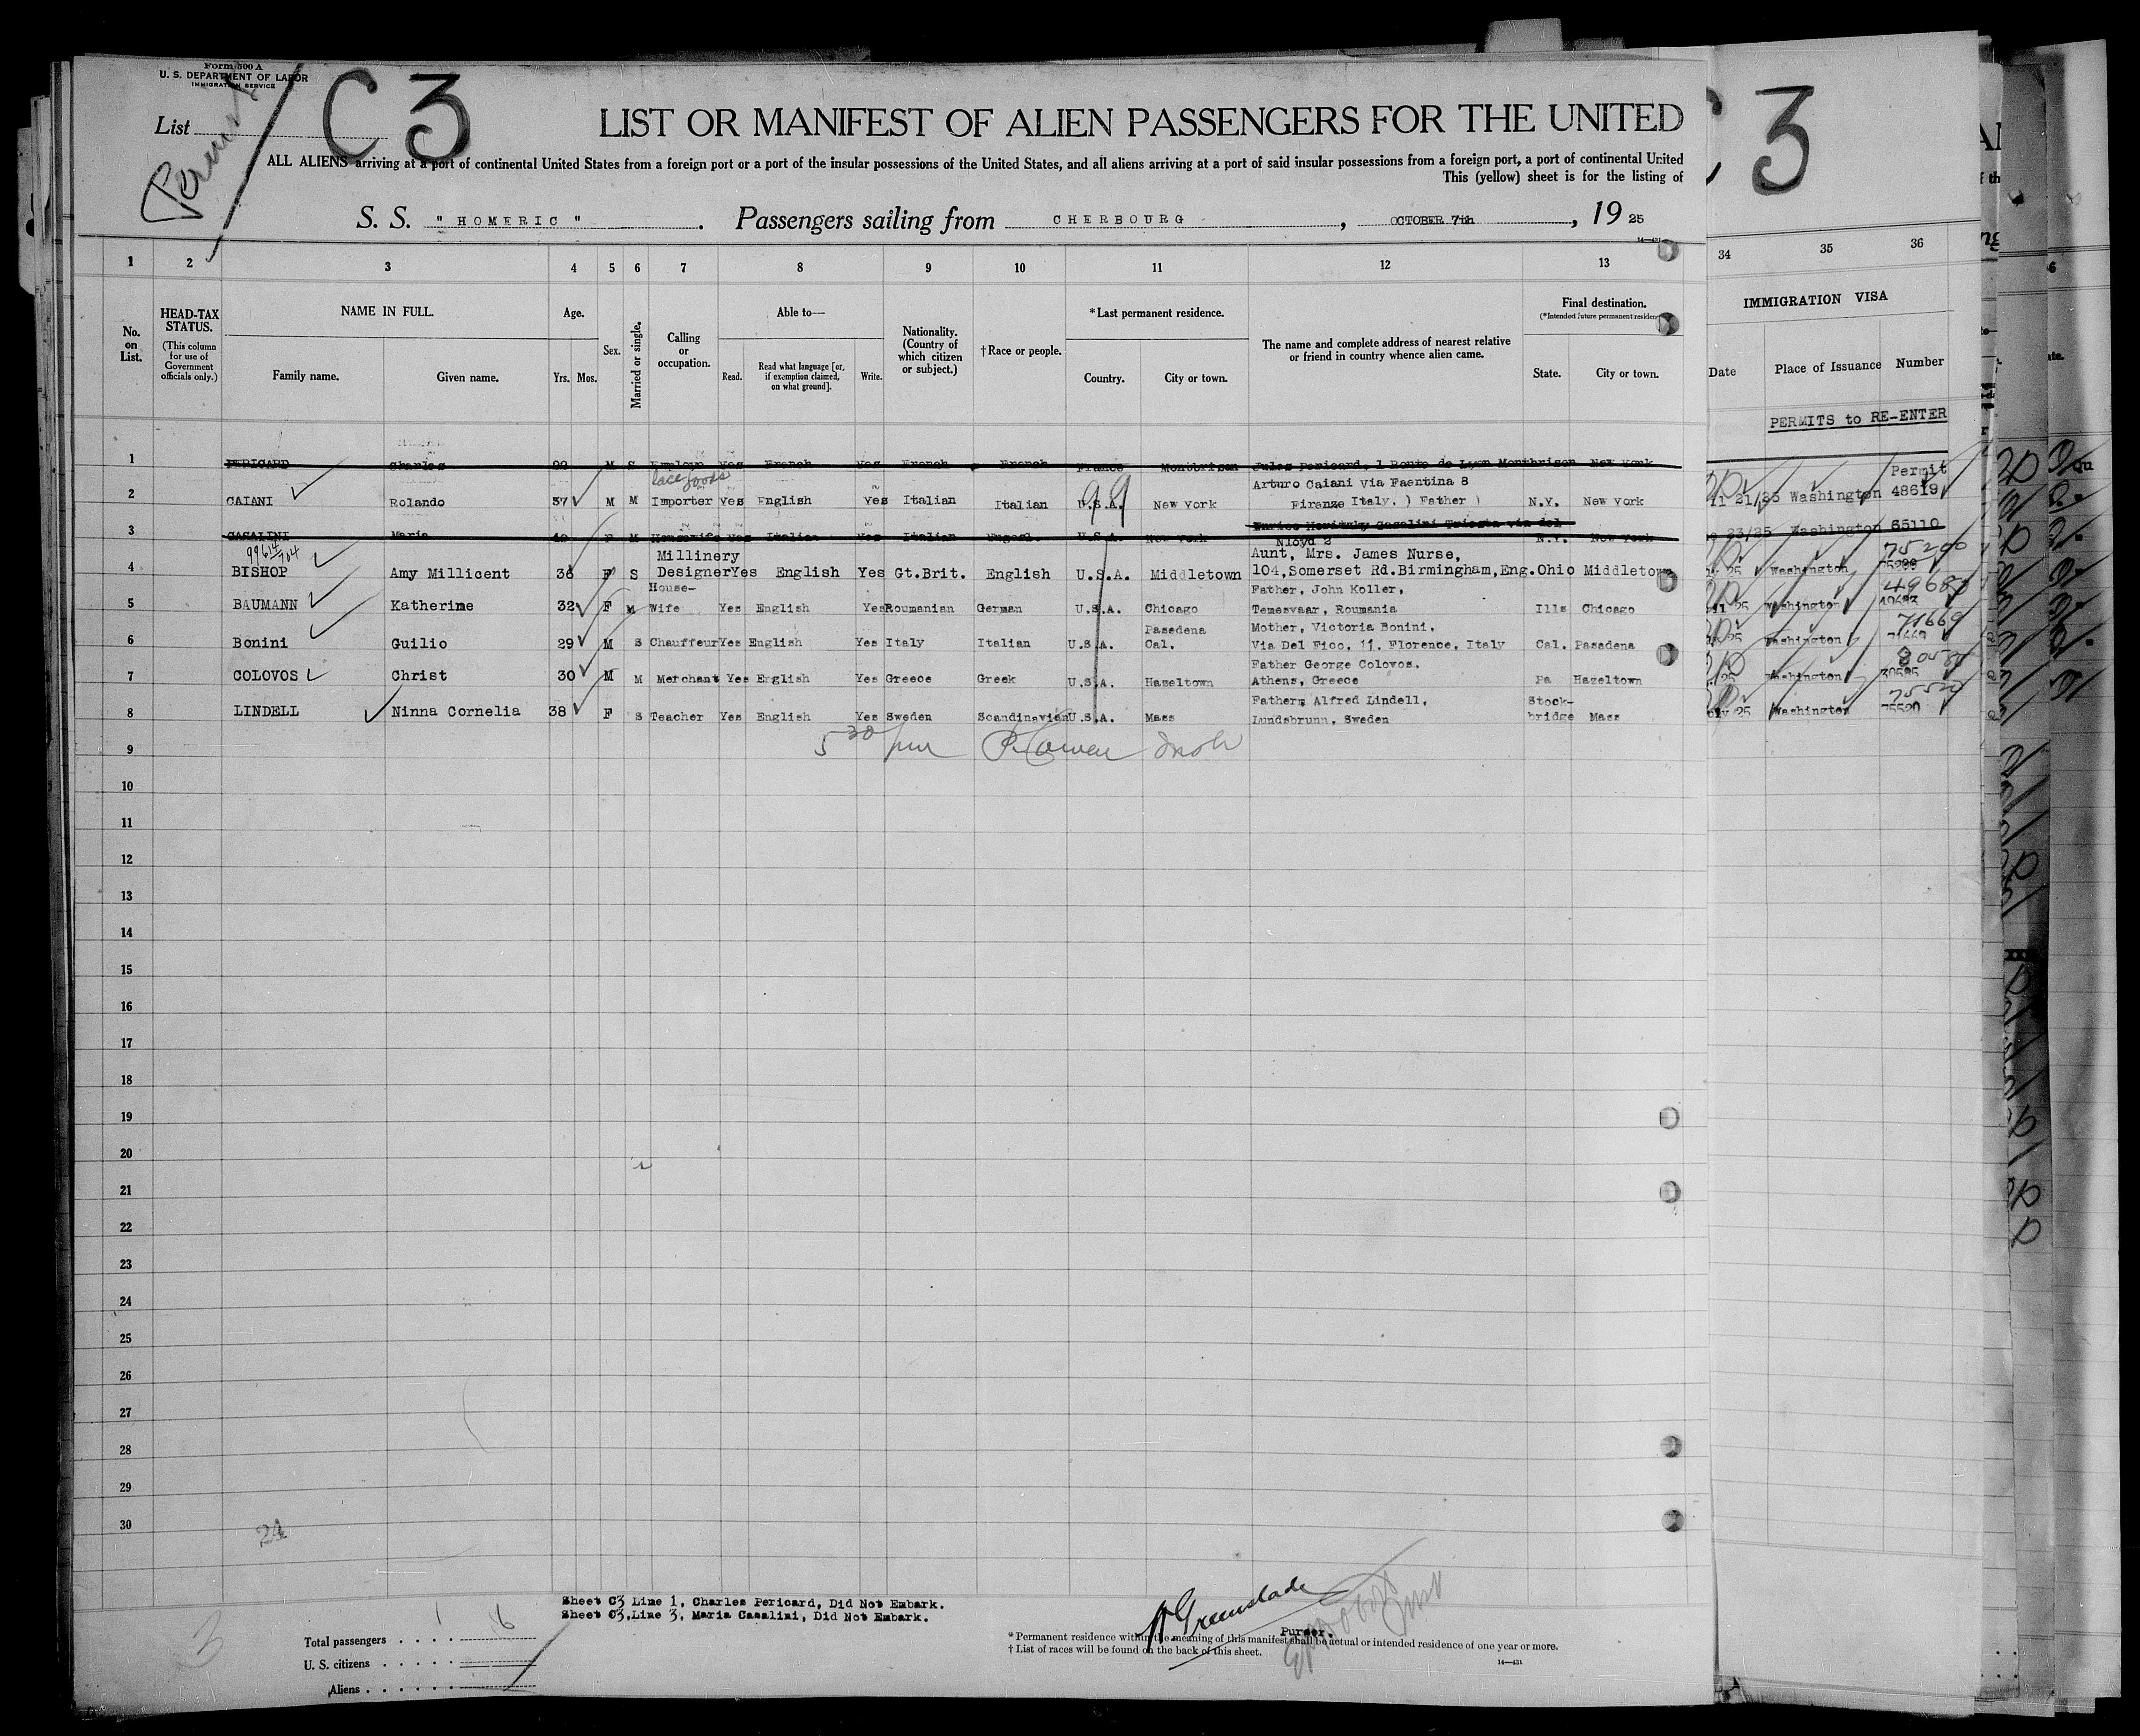 Form 500 A
U. S. DEPARTMENT OF LABOR
IMMIGRATION SERVICE
List
Permit
C 3
C 3
LIST OR MANIFEST OF ALIEN PASSENGERS FOR THE UNITED
ALL ALIENS arriving at a port of continental United States from a foreign port or a port of the insular possessions of the United States, and all aliens arriving at a port of said insular possessions from a foreign port, a port of continental United
This (yellow) sheet is for the listing of
S. S. " HOMERIC " . Passengers sailing from CHERBOURG , OCTOBER 7th , 19 25
1 2 3 4 5 6 7 8 9 10 11 12 13 34 35 36
No. on List.
HEAD-TAX STATUS.
(This column for use of Government officials only.)
NAME IN FULL.
Family name. Given name.
Age.
Yrs. Mos.
Sex.
Married or single.
Calling or occupation.
Able to—
Read. Read what language [or, if exemption claimed, on what ground]. Write.
Nationality. (Country of which citizen or subject.)
†Race or people.
*Last permanent residence.
Country. City or town.
The name and complete address of nearest relative or friend in country whence alien came.
Final destination.
(*Intended future permanent residence
State. City or town.
IMMIGRATION VISA
Date Place of Issuance Number
PERMITS to RE-ENTER
1 PERICARD Charles 22 M S Employe Yes French Yes French French France Montbrison Jules Pericard, 1 Route de Lyon Montbrison New York
lace goods Arturo Caiani Via Faentina 8 Permit
2 CAIANI Rolando 37 M M Importer Yes English Yes Italian Italian U.S.A. New York Firenze Italy. ) Father ) N.Y. New York 21/25 Washington 48619
3 CASALINI Maria F M Housewife Yes Italian Yes Italian U.S.A. New York Casalini Trieste via del Nloyd 2 N.Y. New York 23/25 Washington 65110
99614/704 Millinery Aunt, Mrs. James Nurse, 75200
4 BISHOP Amy Millicent 36 F S Designer Yes English Yes Gt.Brit. English U.S.A. Middletown 104,Somerset Rd.Birmingham,Eng. Ohio Middletown 25 Washington
House- Father, John Koller, 49683
5 BAUMANN Katherine 32 F M Wife Yes English Yes Roumanian German U.S.A. Chicago Temesvaar, Roumania Ills Chicago 25 Washington 49683
Pasedena Mother, Victoria Bonini, 71669
6 Bonini Guilio 29 M S Chauffeur Yes English Yes Italy Italian U.S.A. Cal. Via Del Fico, 11. Florence, Italy Cal. Pasadena 25 Washington 71669
Father George Colovos,
7 COLOVOS Christ 30 M M Merchant Yes English Yes Greece Greek U.S.A. Hazeltown Athens, Greece Pa Hazeltown 25 Washington
Father; Alfred Lindell, Stock- 75520
8 LINDELL Ninna Cornelia 38 F S Teacher Yes English Yes Sweden Scandinavian U.S.A. Mass Lundsbrunn, Sweden bridge Mass 25 Washington 75520
99
9 5 30 pm
10
11
12
13
14
15
16
17
18
19
20
21
22
23
24
25
26
27
28
29
30
24
Sheet C3 Line 1, Charles Pericard, Did Not Embark.
Sheet C3,Line 3, Maria Casalini, Did Not Embark.
3
Total passengers 1 6
U. S. citizens
Aliens
Greenslade
Purser.
*Permanent residence within the meaning of this manifest shall be actual or intended residence of one year or more.
†List of races will be found on the back of this sheet.
14—431